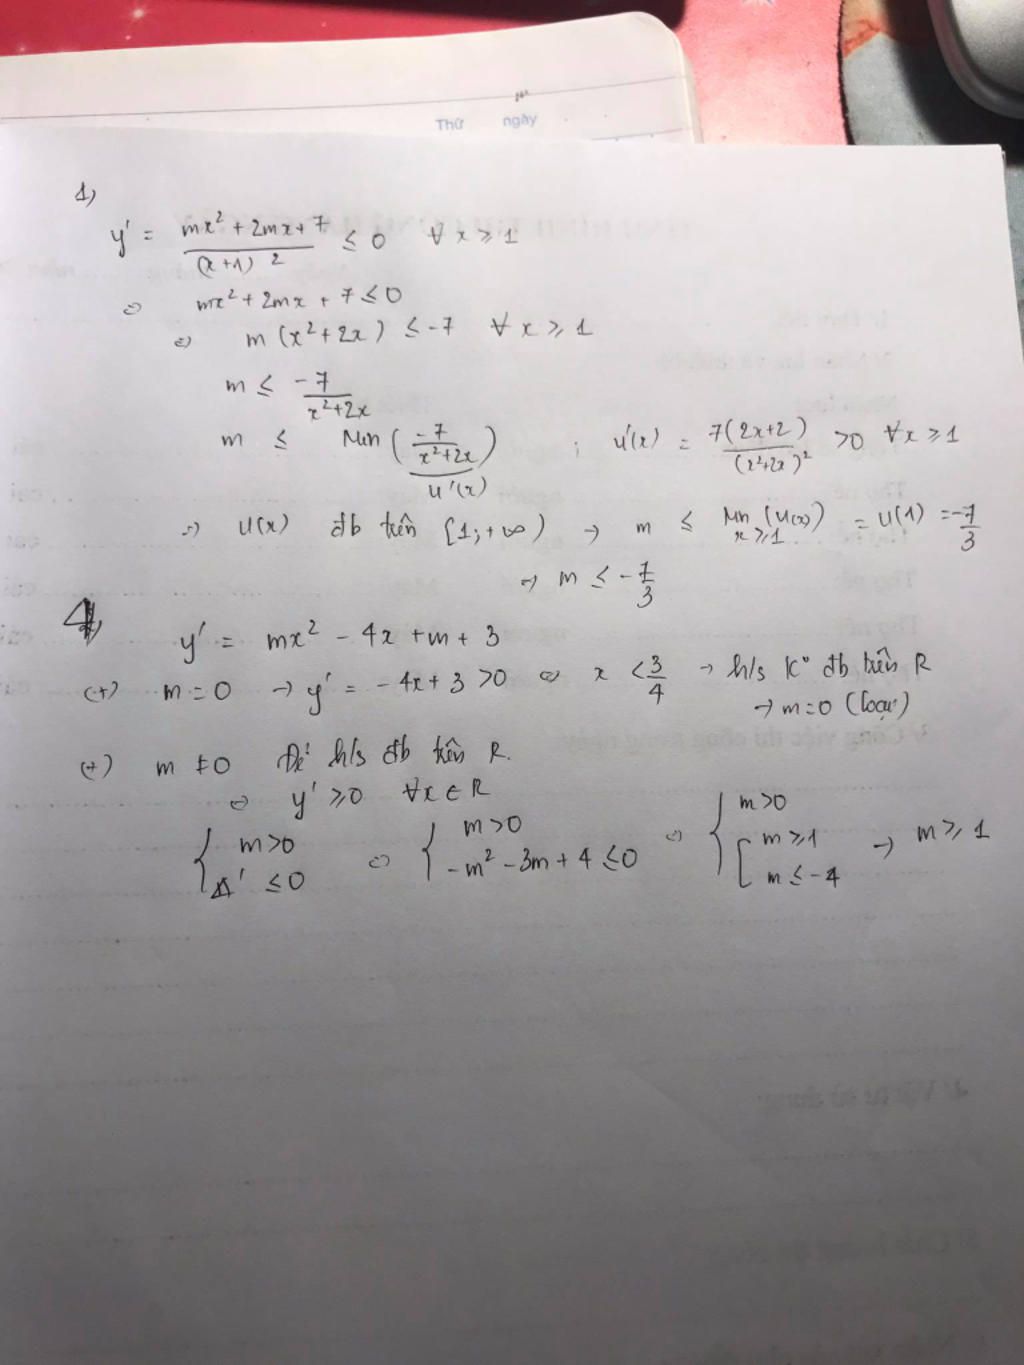 Thứ ngày
1)
y' = (mx² + 2mx + 7)/(x+1)² ≤ 0 ∀ x ≥ 1
⇔ mx² + 2mx + 7 ≤ 0
⇔ m(x² + 2x) ≤ -7 ∀ x ≥ 1
m ≤ -7/(x²+2x)
m ≤ Min (-7/(x²+2x)) ; u'(x) = 7(2x+2)/(x²+2x)² > 0 ∀x ≥ 1
u'(x)
→ u(x) đb trên [1;+∞) → m ≤ Min (u(x)) = u(1) = -7/3
x ≥ 1
→ m ≤ -7/3
4)
y' = mx² - 4x + m + 3
(+) m = 0 → y' = -4x + 3 > 0 ⇔ x < 3/4 → h/s K° đb trên R
→ m = 0 (loại)
(+) m ≠ 0 Để h/s đb trên R.
⇔ y' ≥ 0 ∀x ∈ R
{ m > 0 ⇔ { m > 0 ⇔ { m > 0
Δ' ≤ 0 -m² - 3m + 4 ≤ 0 [ m ≥ 1 → m ≥ 1
m ≤ -4